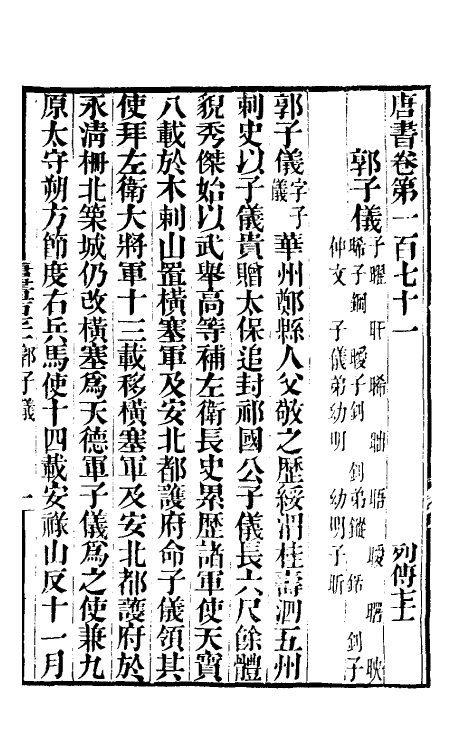 唐書卷第一百七十一 列傳
郭子儀
子曜 旰 晞 昢 晤 曖 曙 映
晞子鋼 曖子釗 釗弟鏦 銛 釗子
仲文 子儀弟幼明 幼明子昕
郭子儀字子儀華州鄭縣人父敬之歷綏渭桂壽泗五州
刺史以子儀貴贈太保追封祁國公子儀長六尺餘體
貌秀傑始以武舉高等補左衛長史累歷諸軍使天寶
八載於木剌山置橫塞軍及安北都護府命子儀領其
使拜左衛大將軍十三載移橫塞軍及安北都護府於
永清柵北築城仍改橫塞爲天德軍子儀爲之使兼九
原太守朔方節度右兵馬使十四載安祿山反十一月
郭子儀 一